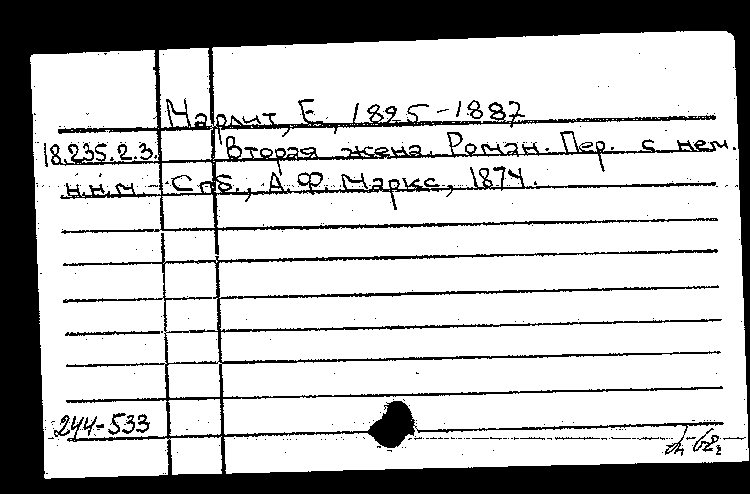 Марлит, Е., 1825-1887
18.235.2.3. Вторая жена. Роман. Пер. с нем.
н.н.м - Спб., А. Ф. Маркс, 1874.
244-533